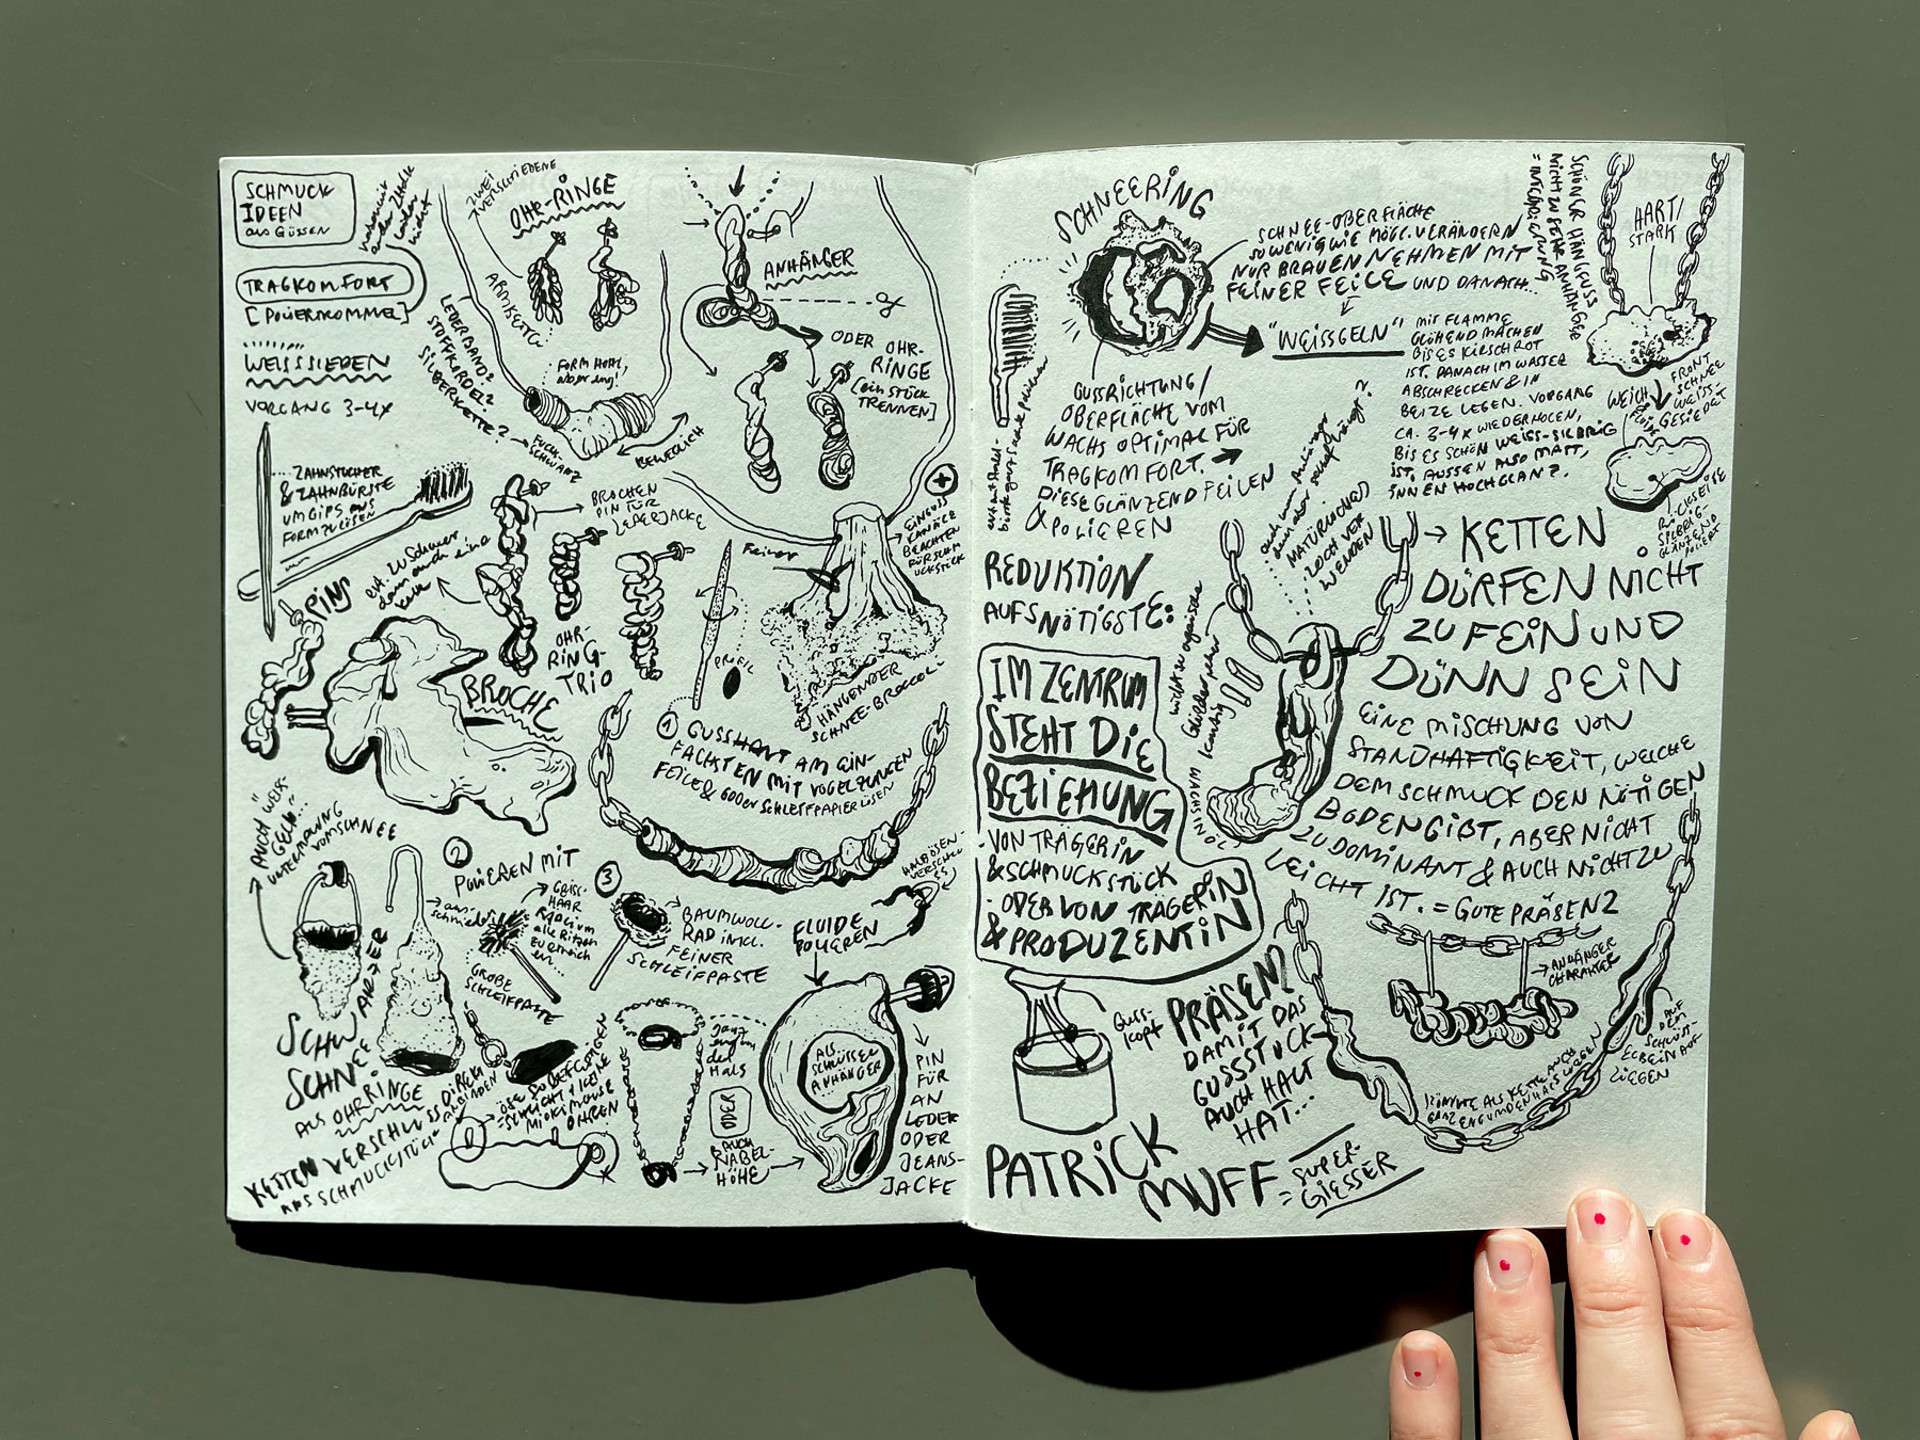 SCHMUCK
IDEEN
aus GÜSSEN
TRAGKOMFORT
[POLIERTROMMEL]
WEISSSIEDEN
VORGANG 3-4x
ZAHNSTOCHER
& ZAHNBÜRSTE
UM GIPS AUS
FORM ZU LÖSEN
ZWEI
VERSCHIEDENE
OHR-RINGE
LEDERBAND?
STOFFKORDEL?
SILBERKETTE?
FORM HOHL,
aber eng!
BEWEGLICH
FUCH-
SCHWANZ
ANHÄNGER
ODER OHR-
RINGE
[ein STÜCK
TRENNEN]
BROCHEN
PIN FÜR
LEDERJACKE
evt. zu schwer
dann auch eine
PINS
OHR-
RING-
TRIO
BROCHE
Feiner
PROFIL
EINGUSS
KANÄLE
BEACHTEN
HÄNGENDER
SCHNEE-BROCCOLI
1 GUSSHAUT AM EIN-
FACHSTEN MIT VOGELZUNGEN
FEILE & 600er SCHLEIFPAPIER LÖSEN
2
POLIEREN MIT
GROBE
SCHLEIFPASTE
3
BAUMWOLL-
RAD INKL.
FEINER
SCHLEIFPASTE
FLUIDE
"AUCH WEIS-
GELN"...
VOM SCHNEE
SCHWARZER
SCHNEE
ALS OHRRINGE
KETTENVERSCHLUSS DIREKT
ALS SCHMUCKSTÜCK
MICKI MOUSE
OHREN
ganz
eng um
den
Hals
ODER
AUCH
NABEL-
HÖHE
ALS
SCHLÜSSEL
ANHÄNGER
PIN
FÜR
AN
LEDER
ODER
JEANS-
JACKE
SCHNEERING
SCHNEE-OBERFLÄCHE
SO WENIG WIE MÖGL. VERÄNDERN
NUR BRAUEN NEHMEN MIT
FEINER FEILE UND DANACH...
"WEISSGELN"
MIT FLAMME
GLÜHEND MACHEN
BIS ES KIRSCHROT
IST. DANACH IM WASSER
ABSCHRECKEN & IN
BEIZE LEGEN. VORGANG
CA. 3-4x WIEDERHOLEN,
BIS ES SCHÖN WEISS-SILBRIG
IST, AUSSEN ALSO MATT,
INNEN HOCHGLANZ.
GUSSRICHTUNG/
OBERFLÄCHE VOM
WACHS OPTIMAL FÜR
TRAGKOMFORT.
DIESE GLÄNZEND FEILEN
& POLIEREN
HART/
STARK
WEICH
FEIN
FRONT
SCHNEE
WEISS-
GESIEDET
RÜCKSEITE
SILBRIG-
GLÄNZEND
POLIERT
NATÜRLICHES
LOCH VER
WENDEN
REDUKTION
AUFS NÖTIGSTE:
IM ZENTRUM
STEHT DIE
BEZIEHUNG
VON TRÄGERIN
& SCHMUCKSTÜCK
ODER VON TRÄGERIN
& PRODUZENTIN
KETTEN
DÜRFEN NICHT
ZU FEIN UND
DÜNN SEIN
EINE MISCHUNG VON
STANDHAFTIGKEIT, WELCHE
DEM SCHMUCK DEN NÖTIGEN
BODEN GIBT, ABER NICHT
ZU DOMINANT & AUCH NICHT ZU
LEICHT IST. = GUTE PRÄSENZ
WACHS IN ÖL
ANHÄNGER
CHARAKTER
AUF
DEM
SCHLÜSS-
ELBEIN AUF
LIEGEN
KÖNNTE ALS KETTE AUCH
GANZ ENG UM DEN HALS LIEGEN
Guss-
kopf
PRÄSENZ
DAMIT DAS
GUSSSTÜCK
AUCH HALT
HAT...
PATRICK
MUFF = SUPER-
GIESSER